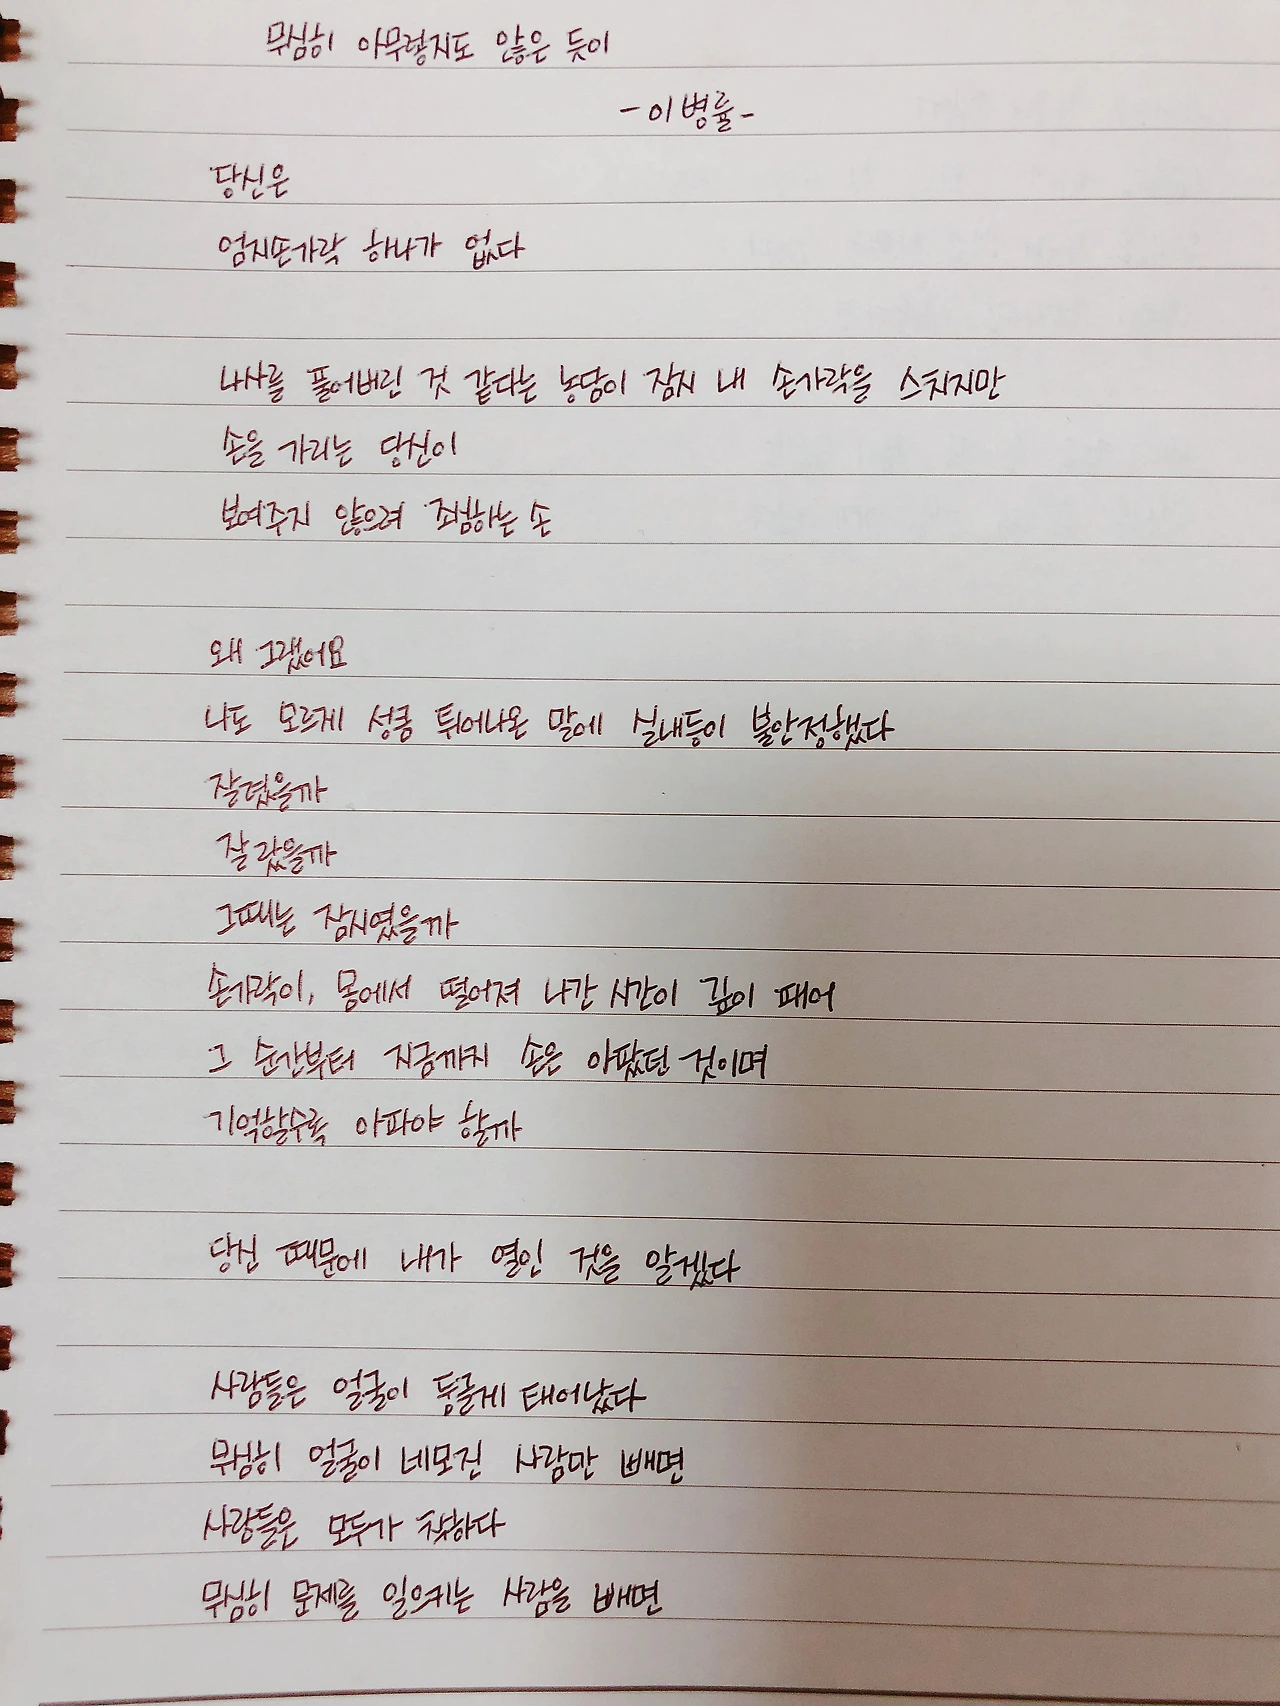 무심히 아무렇지도 않은 듯이
-이병률-
당신은
엄지손가락 하나가 없다
나사를 풀어버린 것 같다는 농담이 잠시 내 손가락을 스치지만
손을 가리는 당신이
보여주지 않으려 죄범하는 손
왜 그랬어요
나도 모르게 성큼 튀어나온 말에 실내등이 불안정했다
잘렸을까
잘랐을까
그때는 잠시였을까
손가락이, 몸에서 떨어져 나간 시간이 깊이 패어
그 순간부터 지금까지 손은 아팠던 것이며
기억할수록 아파야 할까
당신 때문에 내가 열인 것을 알겠다
사람들은 얼굴이 둥글게 태어났다
무심히 얼굴이 네모진 사람만 빼면
사람들은 모두가 착하다
무심히 문제를 일으키는 사람을 빼면